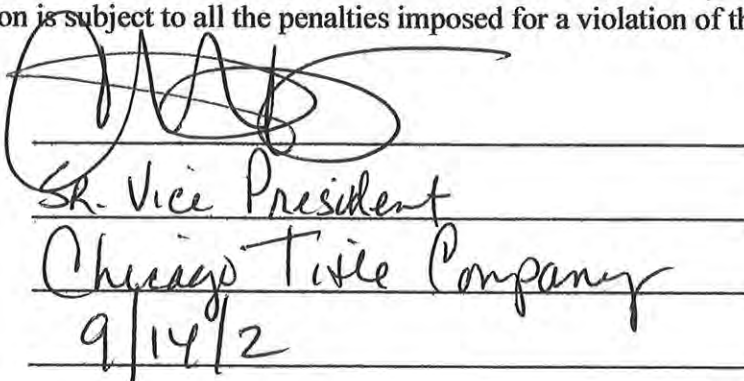 on is subject to all the penalties imposed for a violation of th
Sr. Vice President
Chicago Title Company
9/14/2